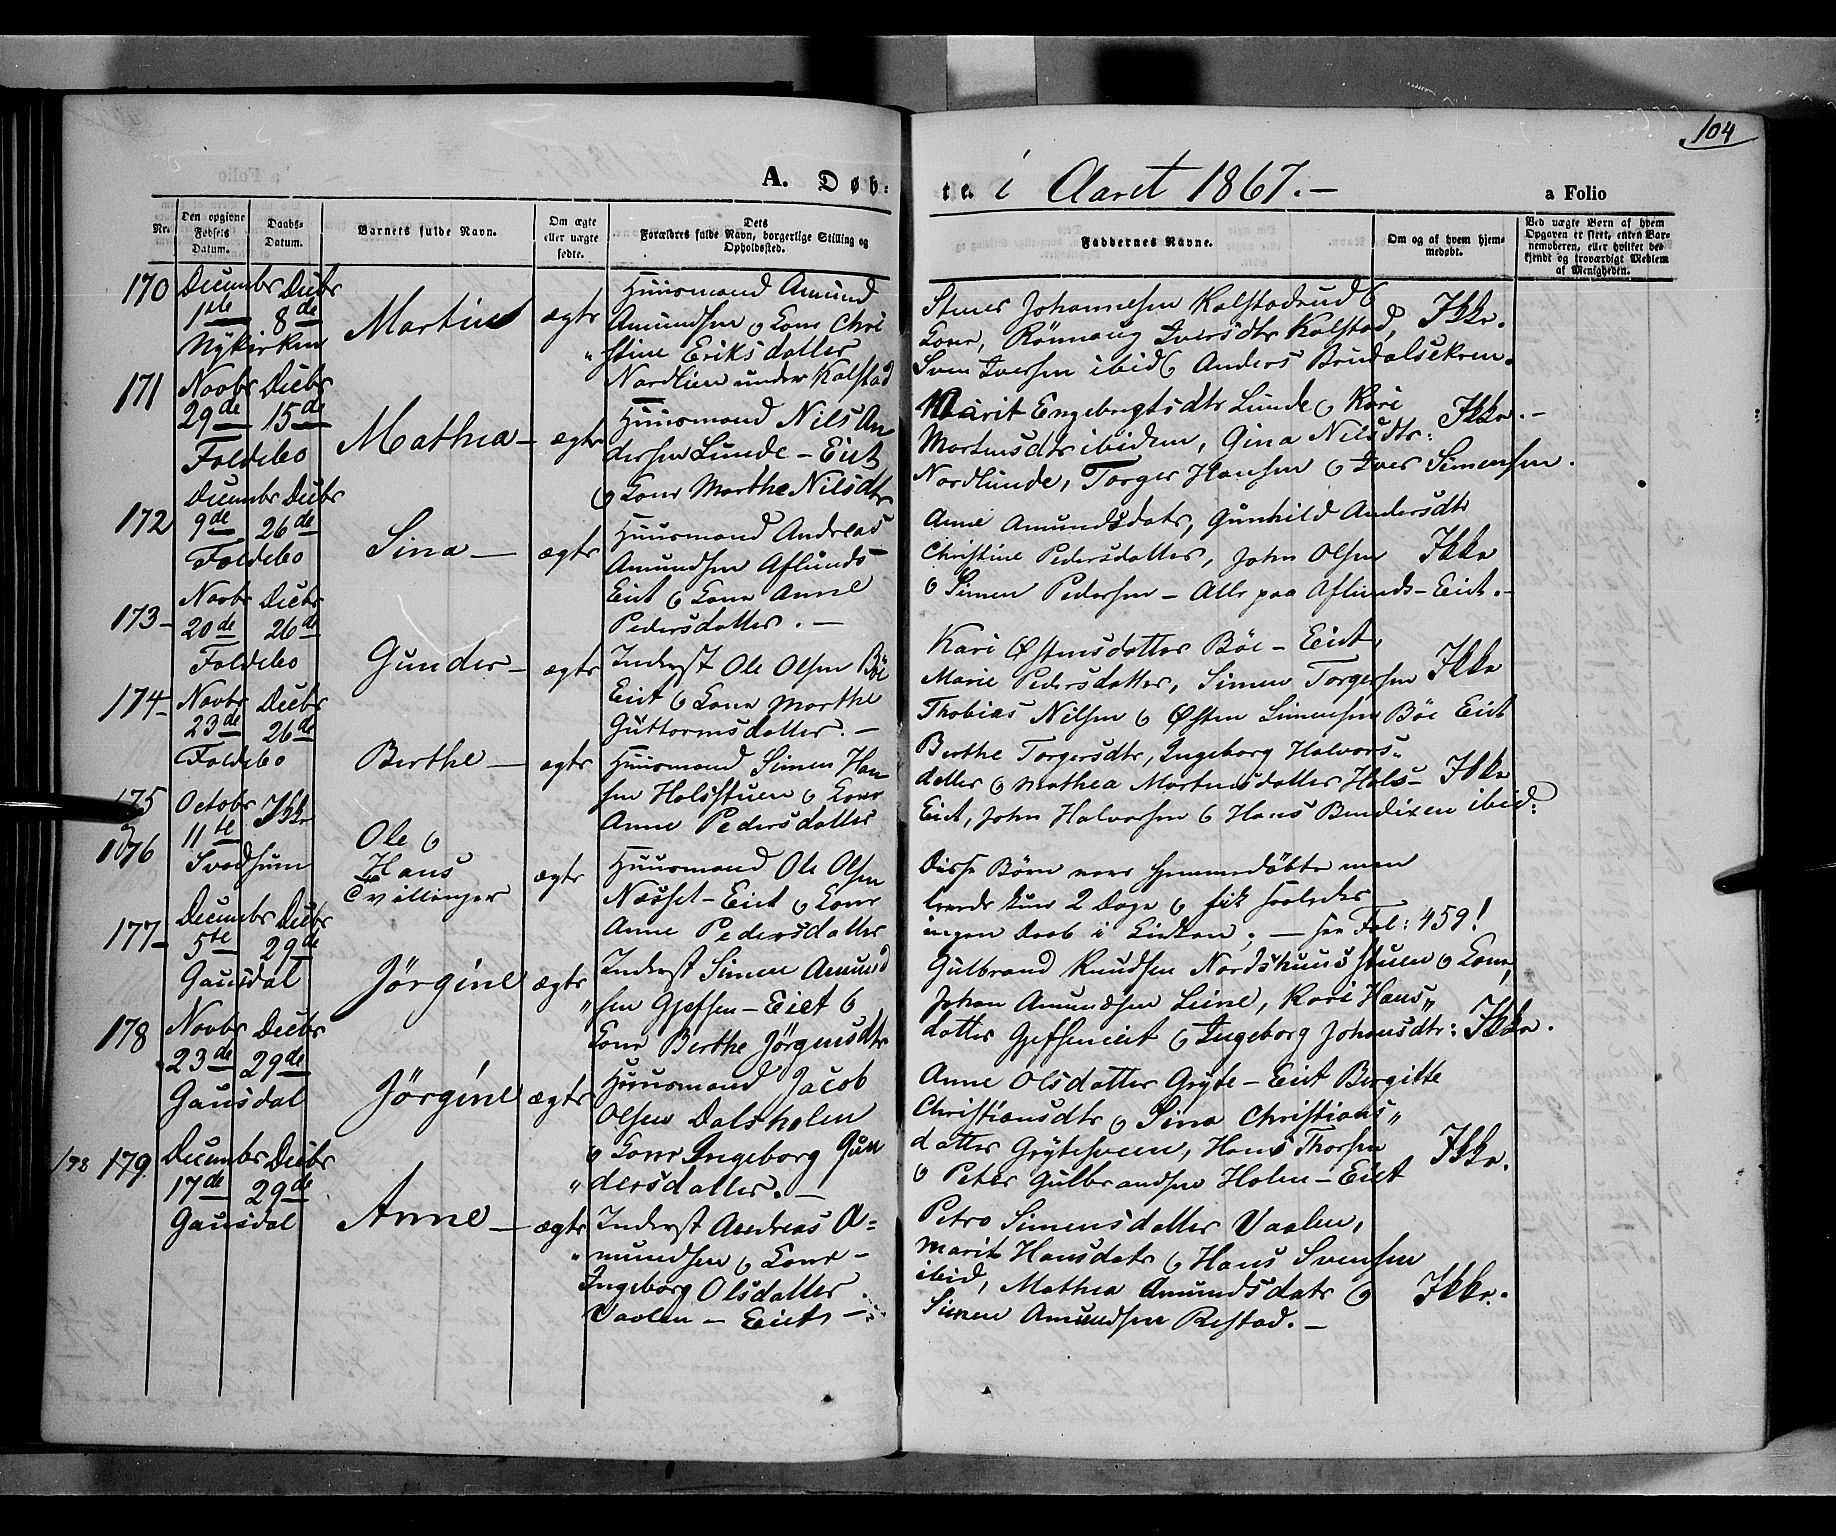 104
A. Døb-
te. i Aaret 1867. —
a Folio
Nr.
Den opgivne
Fødsels
Datum.
Daabs-
Datum.
Barnets fulde Navn.
Om ægte
eller uægte
fødte.
Dets
Forældres fulde Navn, borgerlige Stilling og
Opholdssted.
Faddernes Navne.
Om og af hvem hjem-
medøbt.
Ved uægte Børn af hvem
Opgaven er skeet, enten Bar-
nemoderen, eller hvilket be-
kjendt og troværdigt Medlem
af Menigheden.
170
Decembr Decbr
1ste 8de
Nykirken
Martin
ægte
Huusmand Amund
Amundsen og Kone Chri
" stine Eriksdatter
Nordlien under Kalstad
Stener Johannesen Kalstadrud &
Kone, Rönnaug Iversdtr Kalstad,
Sven Iversen ibid & Anders Brudalsekren.
Ikke.
171
Novbr Decbr
29de 15de
Foldebo
Mathea —
ægte
Huusmand Nils An
dersen Lunde - Eiet
og Kone Marthe Nilsdtr
Marit Engebregtsdtr Lunde og Kari
Mortensdtr ibidem, Gina Nilsdtr:
Nordlunde, Torger Hansen og Iver Simensen.
Ikke. —
172
Decembr Decbr
9de 26de
Foldebo
Sina —
ægte
Huusmand Andreas
Amundsen Aflunds-
Eiet og Kone Anne
Pedersdatter. —
Anne Amundsdatr, Gunhild Andersdtr
Christine Pedersdatter, John Olsen
og Simen Pedersen - Alle paa Aflunds-Eiet. —
Ikke
173 —
Novbr Decbr
20de 26de
Foldebo
Gunder —
ægte
Inderst Ole Olsen Böe
Eiet og Kone Marthe
Guttormsdatter. —
Kari Østensdatter Böe - Eiet,
Marie Pedersdatter, Simen Torgersen
Thobias Nilsen og Østen Simensen Böe Eiet
Ikke
174 —
Novbr Decbr
23de 26de
Foldebo
Berthe —
ægte
Huusmand Simen Han
sen Holsstuen og Kone
Anne Pedersdatter
Berthe Torgersdtr, Ingeborg Halvors-
datter og Mathea Mortensdatter Hols-
Eiet, John Halvorsen & Hans Bendixen ibid:
Ikke
175
og
176
Octobr Ikke
11te
Svadsum
Ole og
Hans
Tvillinger
ægte
Huusmand Ole Olsen
Næsset - Eiet og Kone
Anne Pedersdatter
Disse Börn vare hjemmedöbte men
levede kun 2 Dage og fik saaledes
ingen Daab i Kirken; — see Fol: 459!
177 —
Decembr Decbr
5te 29de
Gausdal
Jörgine
ægte
Inderst Simen Amund
" sen Gjefsen - Eiet &
Kone Berthe Jörgensdtr
Gulbrand Knudsen Nordshuusstuen og Kone,
Johan Amundsen Leine, Kari Hans"
datter Gjefseneiet & Ingeborg Johansdtr:
Ikke.
178
Novbr Decbr
23de 29de
Gausdal
Jörgine
ægte
Huusmand Jacob
Olsen Dalsholen
og Kone Ingeborg Gun
" dersdatter. —
Anne Olsdatter Gryte - Eiet Birgitte
Christiansdtr og Sina Christians"
datter Grytesveen, Hans Thorsen
og Peter Gulbrandsen Holen - Eiet
Ikke.
178 179
Decembr Decbr
17de 29de
Gausdal
Anne —
ægte
Inderst Andreas A=
" mundsen og Kone -
Ingeborg Olsdatter
Vaalen - Eiet —
Petro Simensdatter Vaalen,
Marit Hansdatr og Hans Svensen
ibid, Mathea Amundsdatr og
Simen Amundsen Restad. —
Ikke.